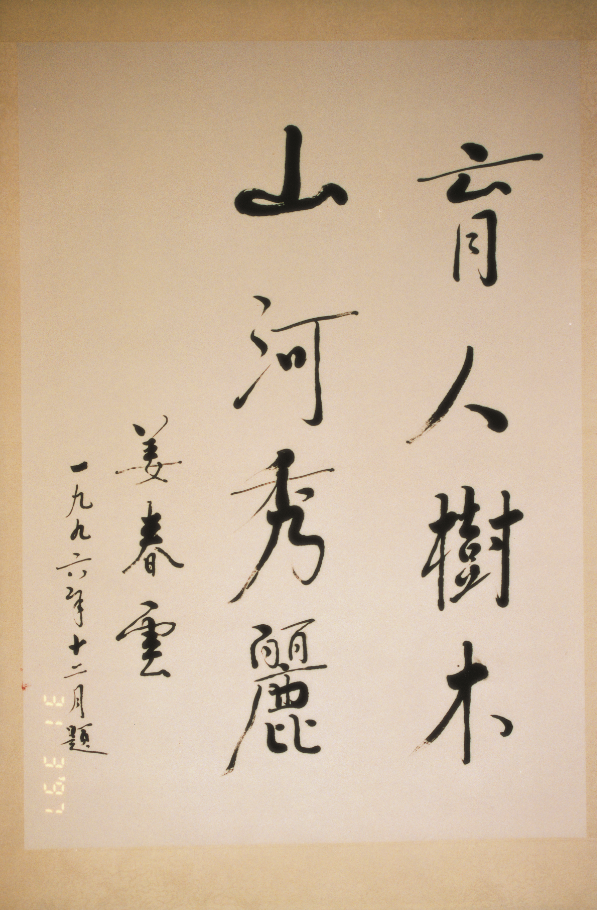 育人樹木
山河秀麗
姜春雲
一九九六年十二月題
31 3'97